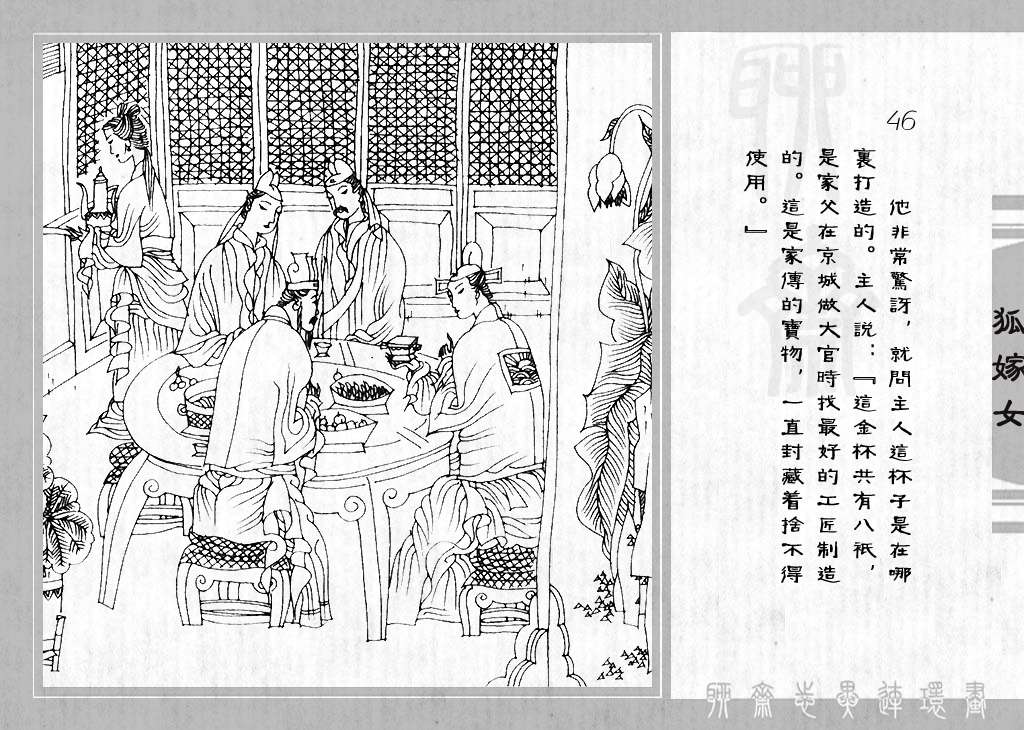 46
他非常驚訝，就問主人這杯子是在哪
裏打造的。主人説：『這金杯共有八祇，
是家父在京城做大官時找最好的工匠制造
的。這是家傳的寶物，一直封藏着捨不得
使用。』
狐嫁女
聊齋志異連環畫